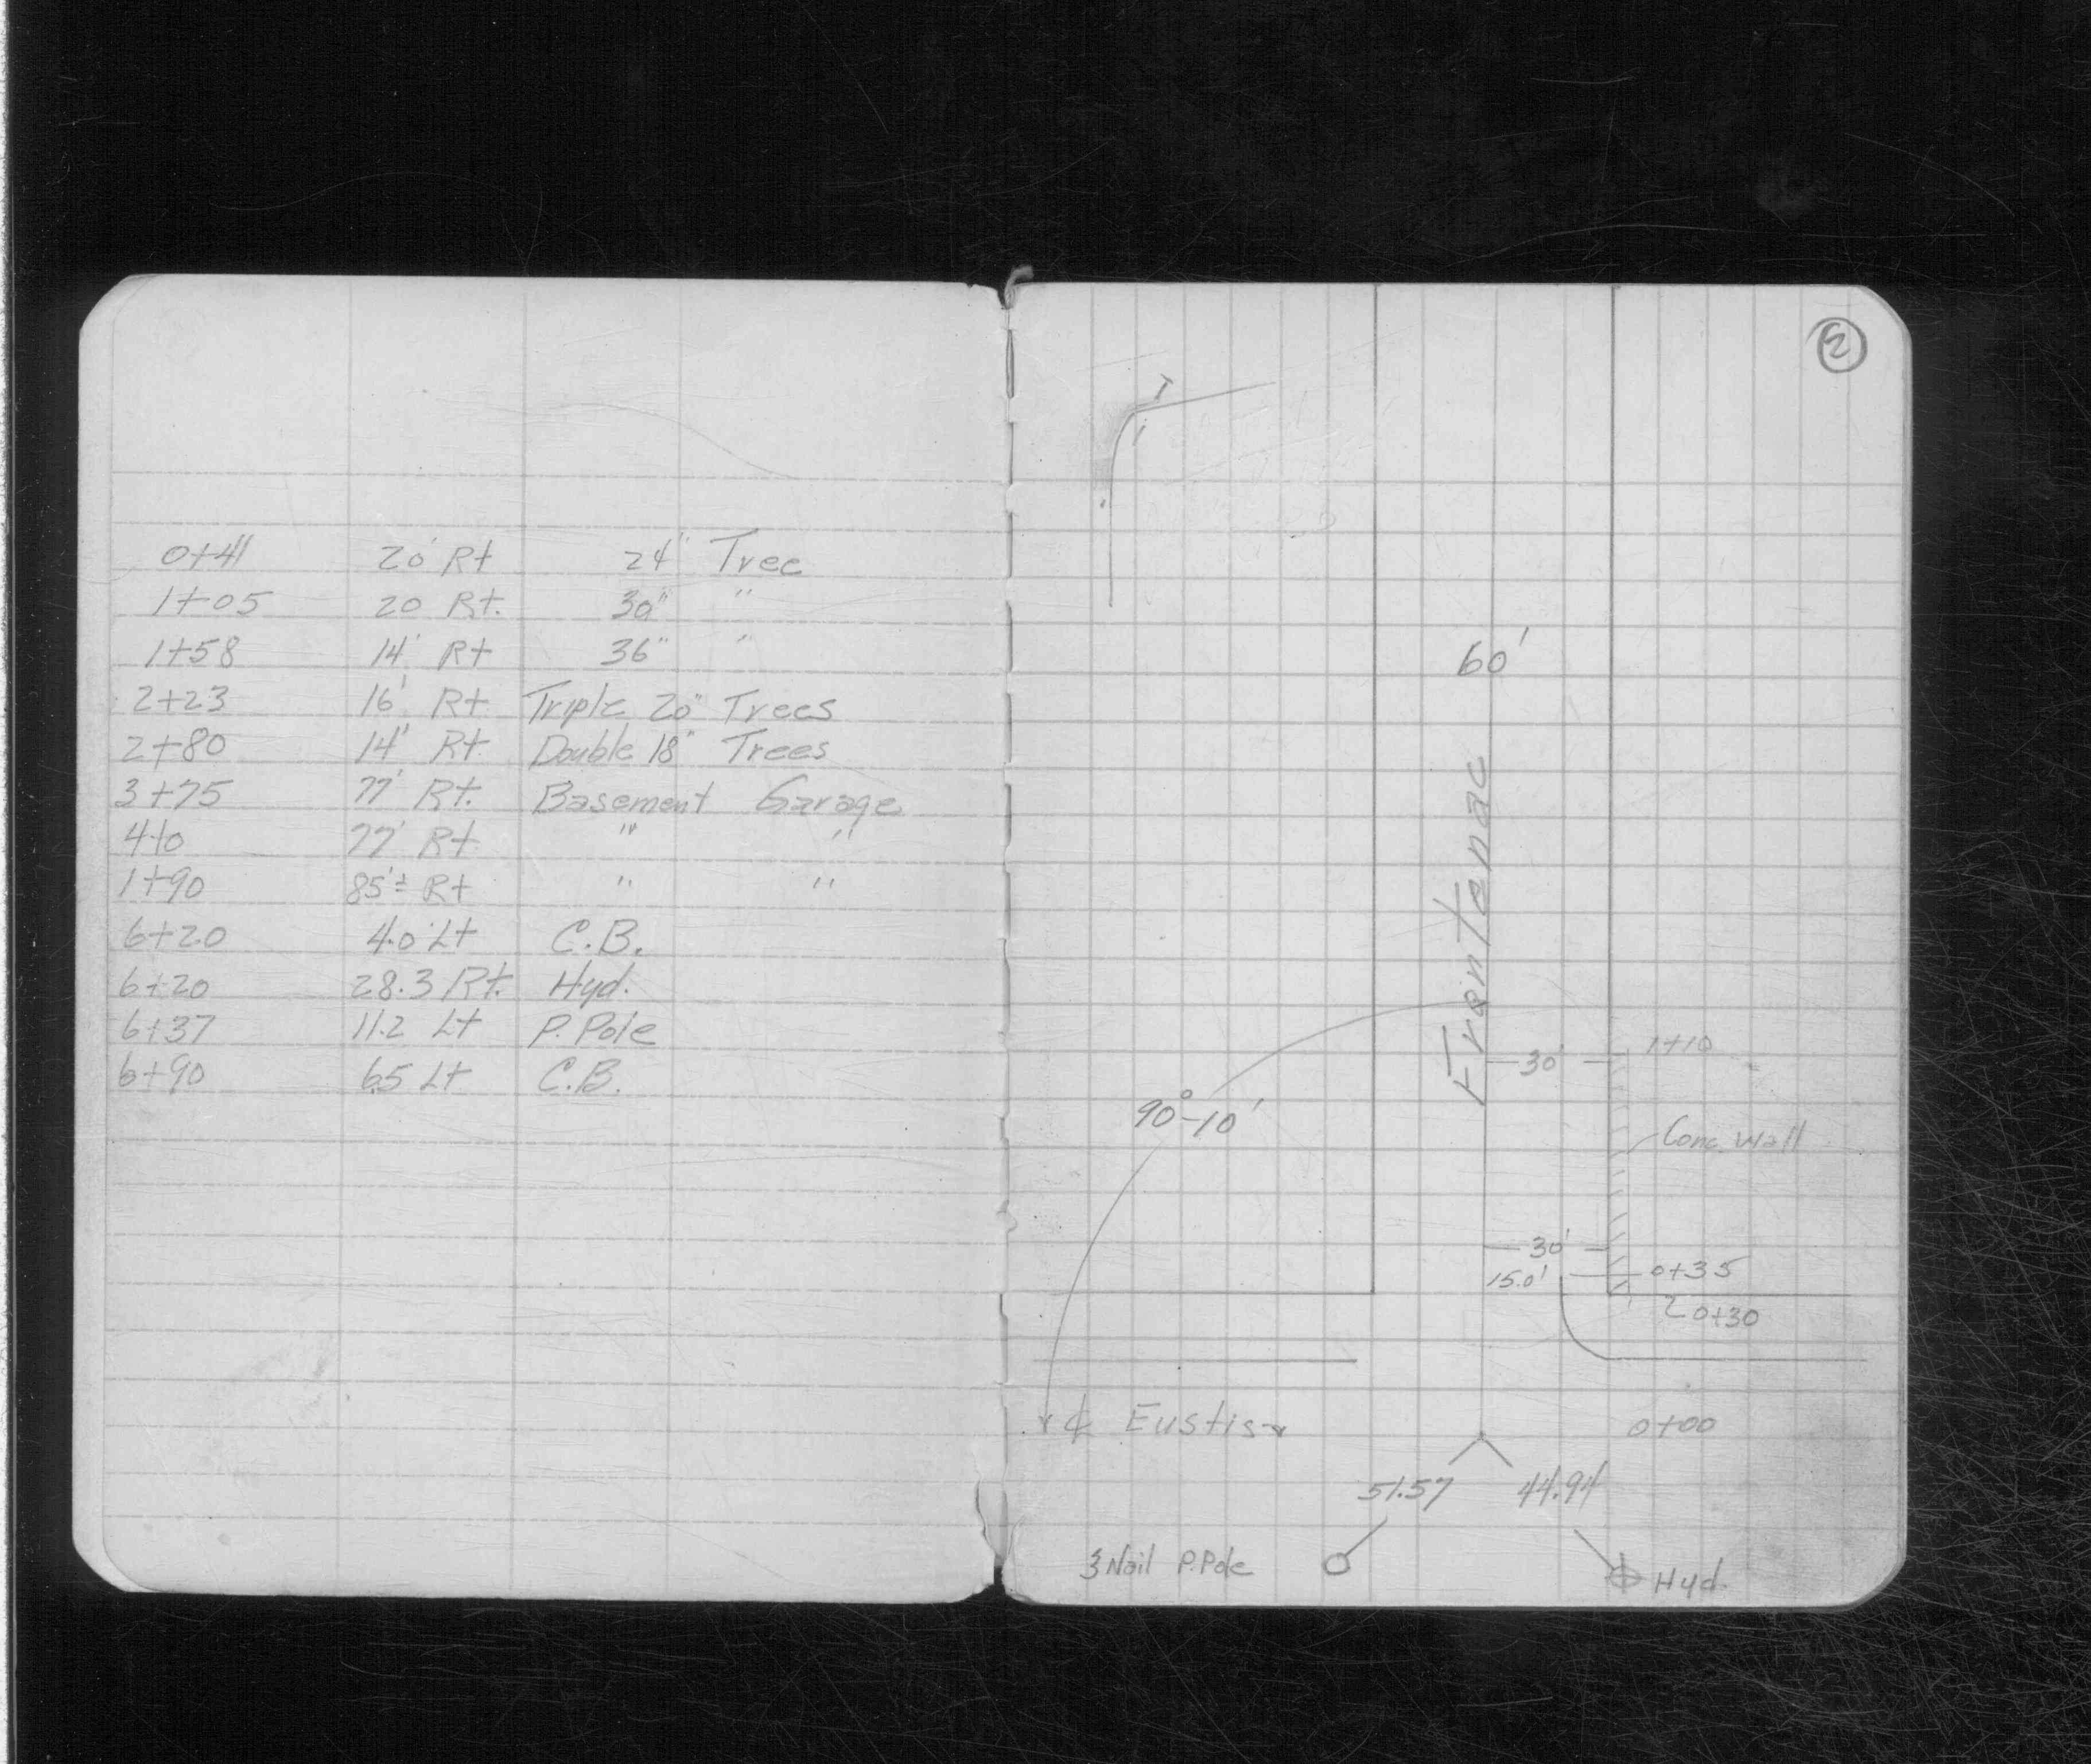 0+41 20' Rt 24" Tree
1+05 20 Rt. 30" "
1+58 14' Rt 36" "
2+23 16' Rt Triple 20" Trees
2+80 14' Rt. Double 18" Trees
3+75 77' Rt. Basement Garage
4+0 77' Rt " "
1+90 85'± Rt " "
6+20 4.0' Lt C.B.
6+20 28.3 Rt. Hyd.
6+37 11.2 Lt P. Pole
6+90 6.5 Lt C.B.
60'
Frontenac
30' 1+10
90°-10'
Conc. Wall
30'
15.0' 0+35
0+30
℄ Eustis 0+00
51.57 44.94
Nail P.Pole Hyd.